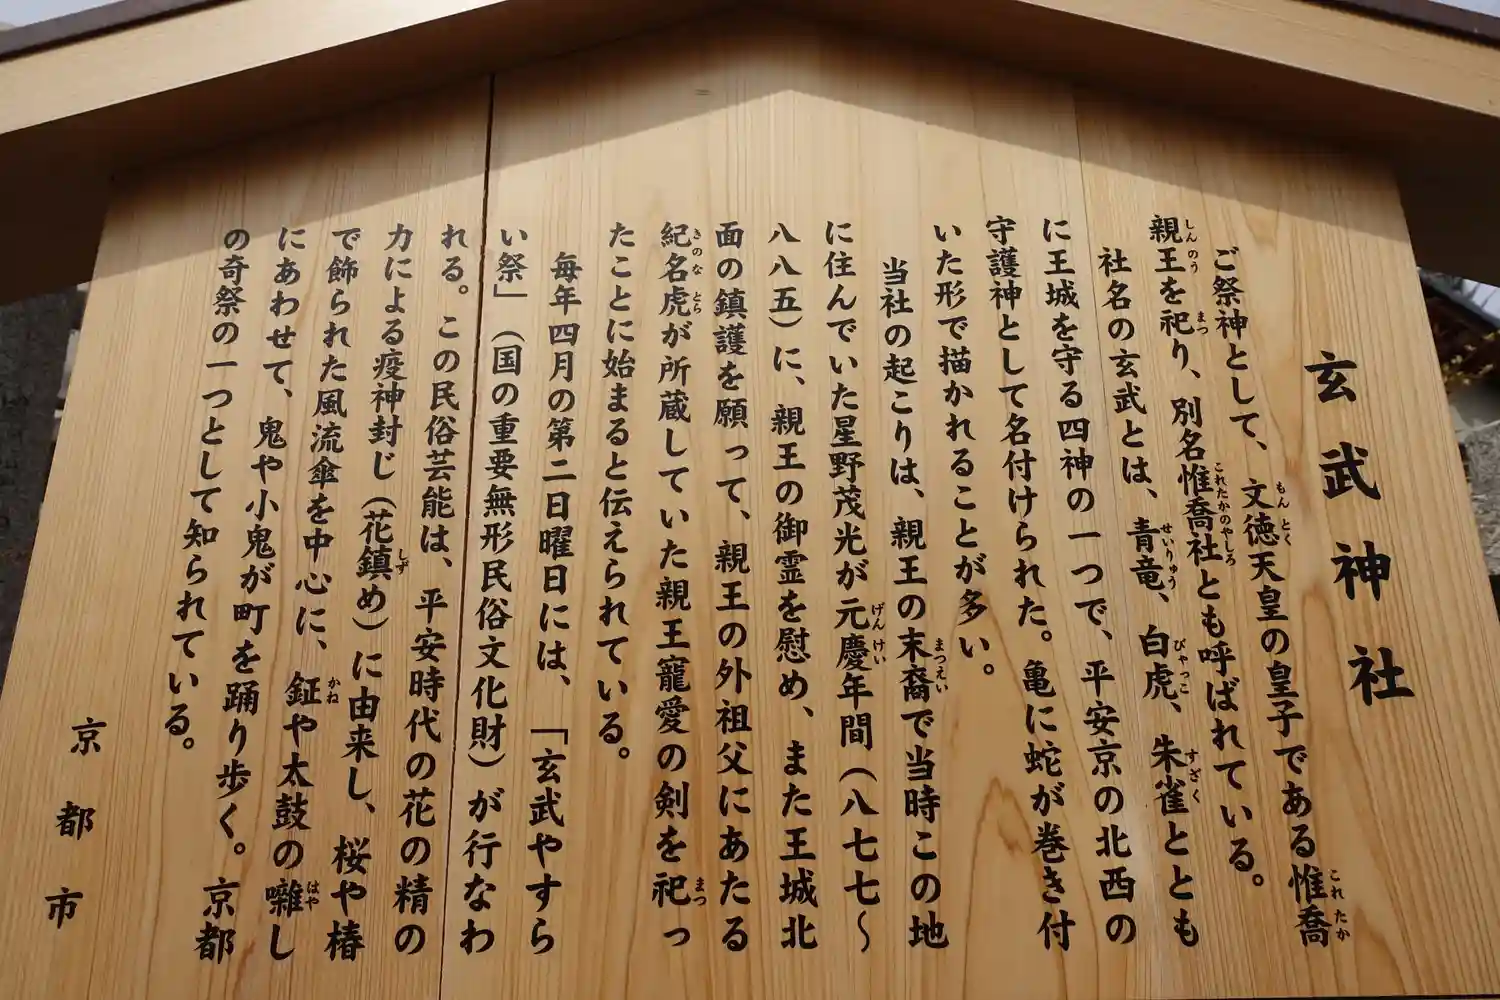 玄武神社
ご祭神として、文徳天皇の皇子である惟喬
親王を祀り、別名惟喬社とも呼ばれている。
社名の玄武とは、青竜、白虎、朱雀ととも
に王城を守る四神の一つで、平安京の北西の
守護神として名付けられた。亀に蛇が巻き付
いた形で描かれることが多い。
当社の起こりは、親王の末裔で当時この地
に住んでいた星野茂光が元慶年間（八七七～
八八五）に、親王の御霊を慰め、また王城北
面の鎮護を願って、親王の外祖父にあたる
紀名虎が所蔵していた親王寵愛の剣を祀っ
たことに始まると伝えられている。
毎年四月の第二日曜日には、「玄武やすら
い祭」（国の重要無形民俗文化財）が行なわ
れる。この民俗芸能は、平安時代の花の精の
力による疫神封じ（花鎮め）に由来し、桜や椿
で飾られた風流傘を中心に、鉦や太鼓の囃し
にあわせて、鬼や小鬼が町を踊り歩く。京都
の奇祭の一つとして知られている。
京都市